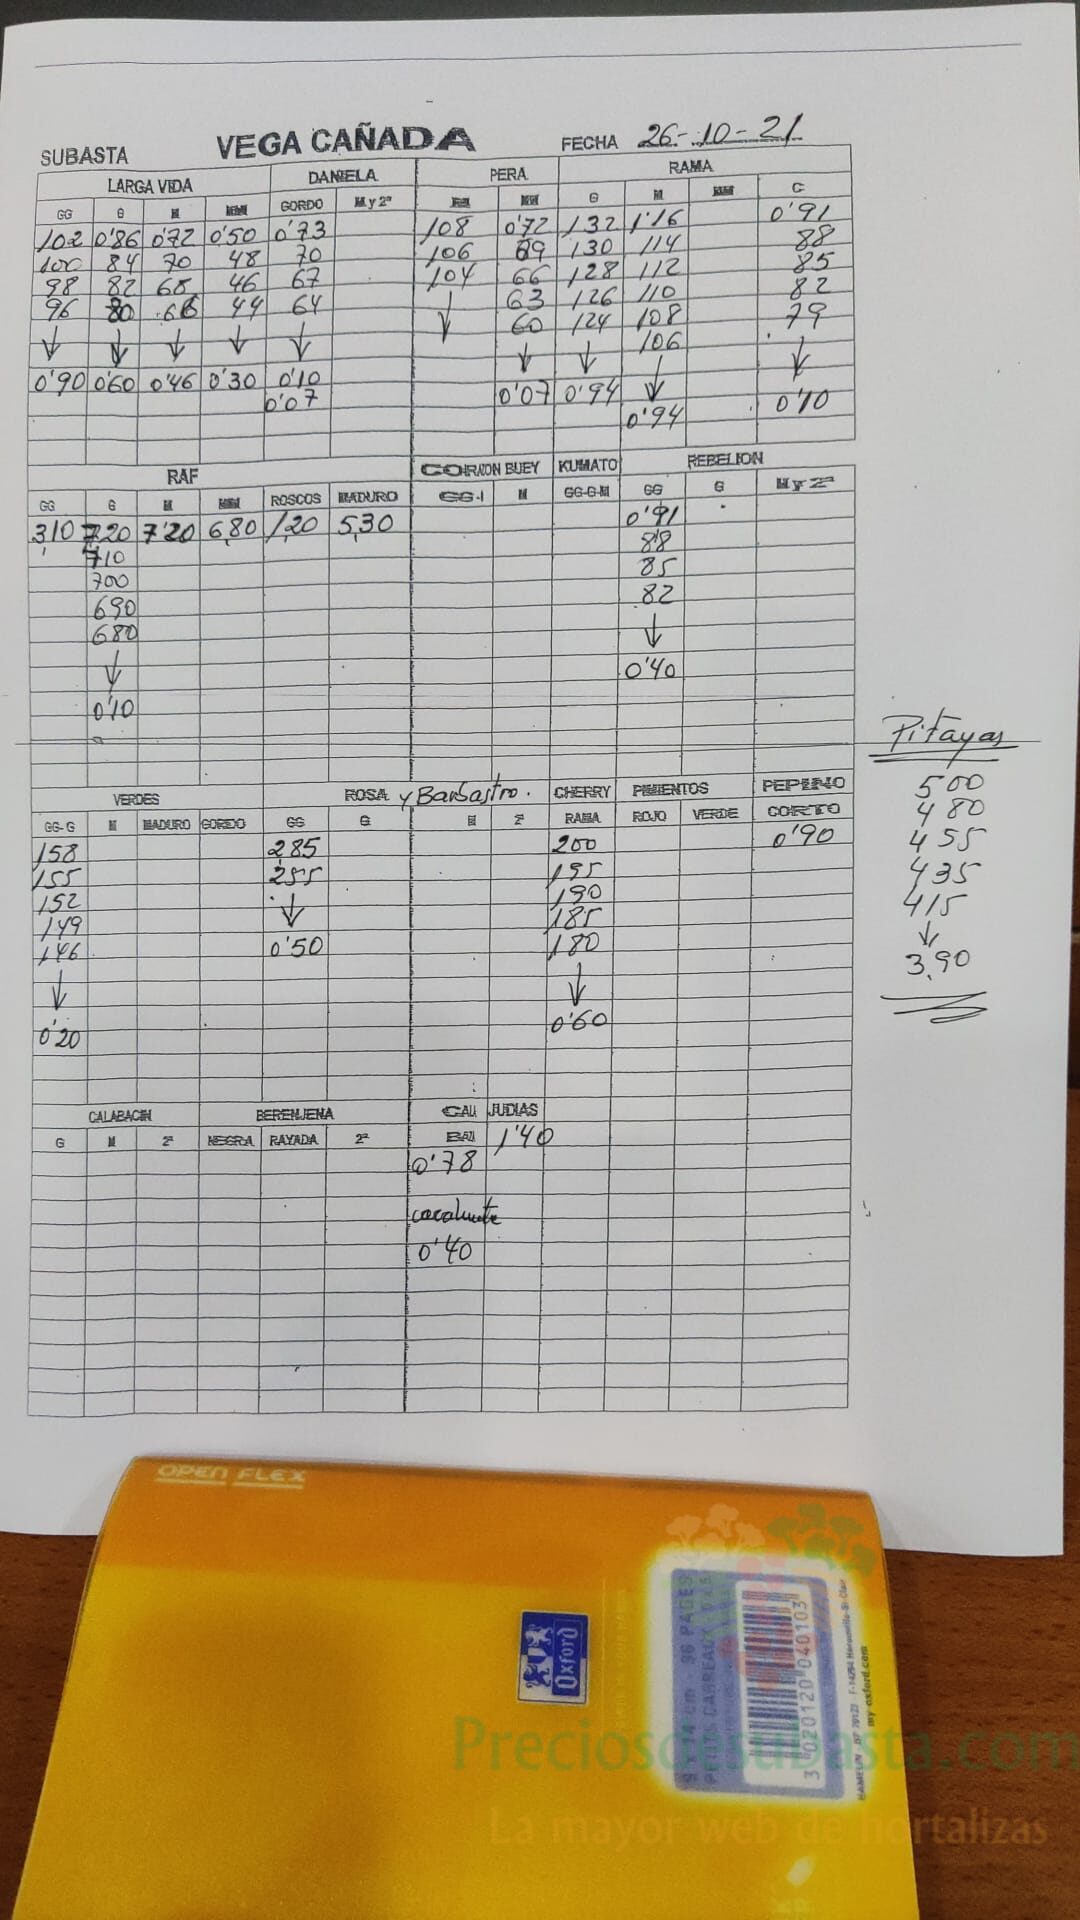 SUBASTA VEGA CAÑADA FECHA 26-10-21
LARGA VIDA DANIELA PERA RAMA
GG G M MM GORDO M y 2ª MM G M MM C
102 0'86 0'72 0'50 0'73 108 0'72 132 1'16 0'91
100 84 70 48 70 106 69 130 114 88
98 82 68 46 67 104 66 128 112 85
96 80 66 44 64 ↓ 63 126 110 82
↓ ↓ ↓ ↓ ↓ 60 124 108 79
↓ ↓ 106 ↓
0'90 0'60 0'46 0'30 0'10 0'07 0'94 ↓ 0'10
0'07 0'94
RAF CORAZON BUEY KUMATO REBELION
GG G M MM ROSCOS MADURO GG-1 M GG-G-M GG G M y 2ª
3,10 7,20 7'20 6,80 1,20 5,30 0'91
710 88
700 85
690 82
680 ↓
↓ 0'40
0'10
Pitayas
500
480
455
435
415
↓
3,90
VERDES ROSA y Barbastro. CHERRY PIMIENTOS PEPINO
GG-G M MADURO GORDO GG G M 2ª RAMA ROJO VERDE CORTO
158 285 200 0'90
155 255 195
152 ↓ 190
149 185
146 0'50 180
↓ ↓
0'20 0'60
CALABACIN BERENJENA CALA JUDIAS
G M 2ª NEGRA RAYADA 2ª 1'40
0'78
cacahuete
0'40
OPEN FLEX
Oxford
9 x 14 cm - 96 PAGES
3 020120 040103
my-oxford.com
Preciosdesubasta.com
La mayor web de hortalizas